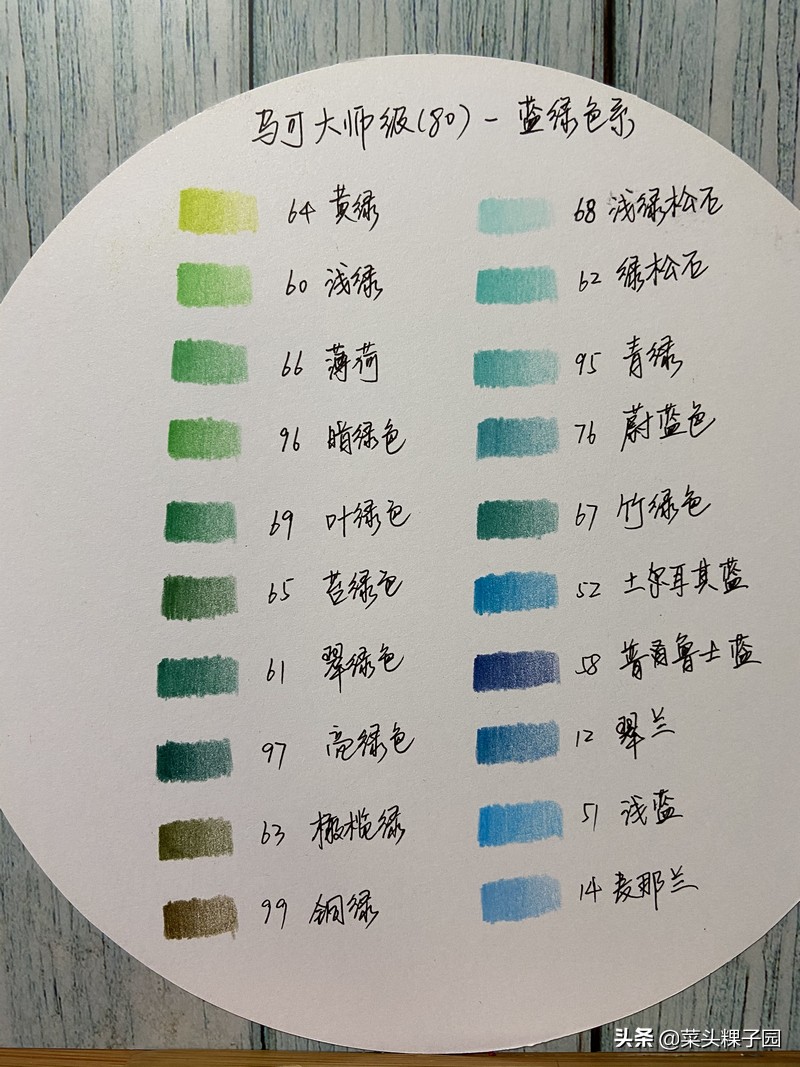 马可大师级(80)-蓝绿色系
64 黄绿
60 浅绿
66 薄荷
96 暗绿色
69 叶绿色
65 苔绿色
61 翠绿色
97 亮绿色
63 橄榄绿
99 铜绿
68 浅绿松石
62 绿松石
95 青绿
76 蔚蓝色
67 竹绿色
52 土尔耳其蓝
58 普鲁士蓝
12 翠兰
51 浅蓝
14 麦那兰
头条 @菜头粿子园